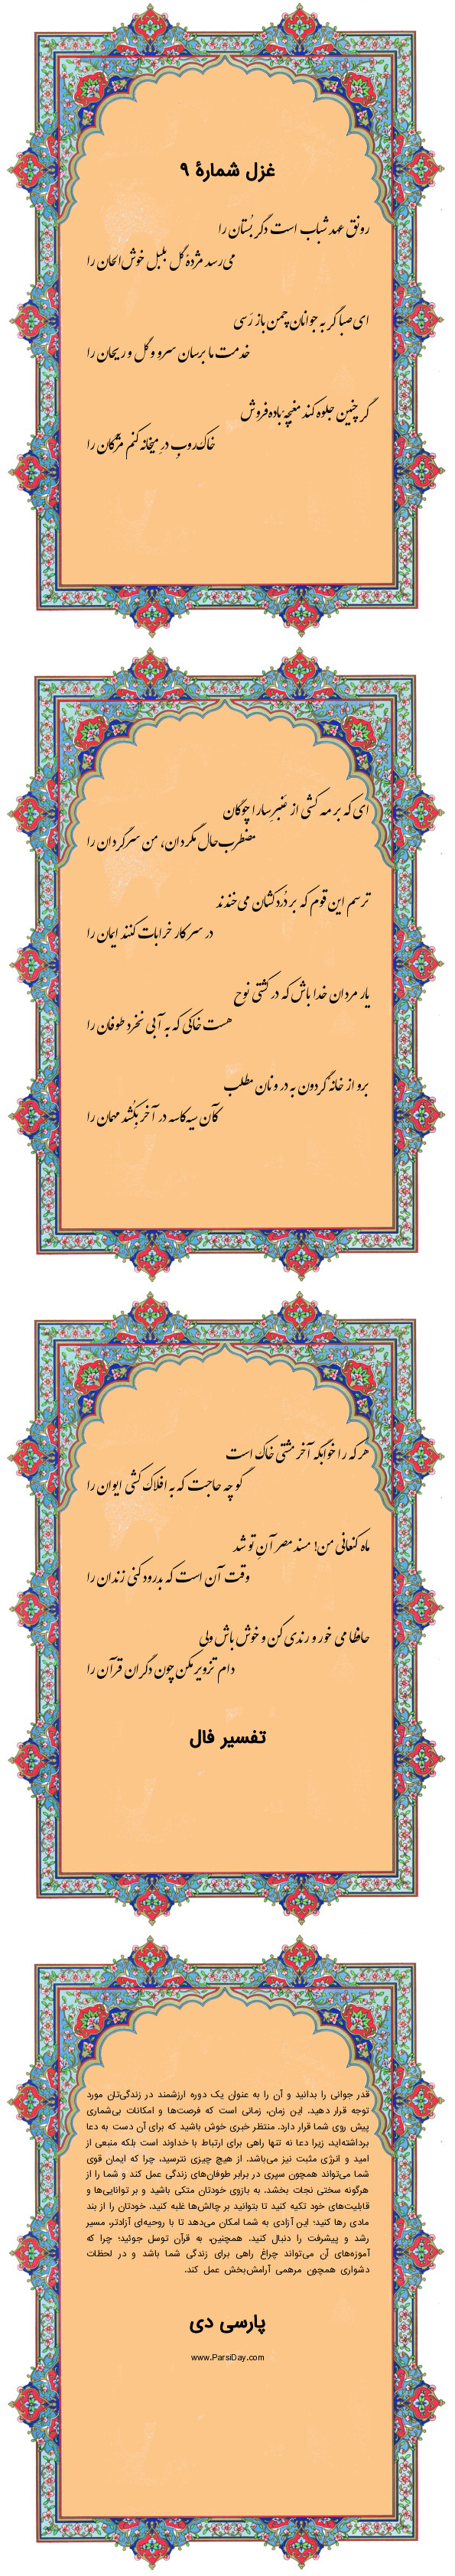 غزل شمارهٔ ۹
رونق عهد شباب است دگر بُستان را
می‌رسد مژدهٔ گل بلبل خوش‌الحان را
ای صبا گر به جوانان چمن باز رَسی
خدمت ما برسان سرو و گل و ریحان را
گر چنین جلوه کند مغبچهٔ باده‌فروش
خاک‌روبِ درِ میخانه کنم مژگان را
ای که بر مه کشی از عَنبرِ سارا چوگان
مضطرب‌حال مگردان، من سرگردان را
ترسم این قوم که بر دُردکشان می‌خندند
در سر کار خرابات کنند ایمان را
یار مردان خدا باش که در کشتی نوح
هست خاکی که به آبی نخرد طوفان را
برو از خانهٔ گردون به در و نان مطلب
کآن سیه‌کاسه در آخر بِکُشد مهمان را
هر که را خوابگه آخر مشتی خاک است
گو چه حاجت که به افلاک کشی ایوان را
ماه کنعانی من! مسند مصر آنِ تو شد
وقت آن است که بدرود کنی زندان را
حافظا می خور و رندی کن و خوش باش ولی
دام تزویر مکن چون دگران قرآن را
تفسیر فال
قدر جوانی را بدانید و آن را به عنوان یک دوره ارزشمند در زندگی‌تان مورد
توجه قرار دهید. این زمان، زمانی است که فرصت‌ها و امکانات بی‌شماری
پیش روی شما قرار دارد. منتظر خبری خوش باشید که برای آن دست به دعا
برداشته‌اید، زیرا دعا نه تنها راهی برای ارتباط با خداوند است بلکه منبعی از
امید و انرژی مثبت نیز می‌باشد. از هیچ چیزی نترسید، چرا که ایمان قوی
شما می‌تواند همچون سپری در برابر طوفان‌های زندگی عمل کند و شما را از
هرگونه سختی نجات بخشد. به بازوی خودتان متکی باشید و بر توانایی‌ها و
قابلیت‌های خود تکیه کنید تا بتوانید بر چالش‌ها غلبه کنید. خودتان را از بند
مادی رها کنید؛ این آزادی به شما امکان می‌دهد تا با روحیه‌ای آزادتر، مسیر
رشد و پیشرفت را دنبال کنید. همچنین، به قرآن توسل جوئید؛ چرا که
آموزه‌های آن می‌تواند چراغ راهی برای زندگی شما باشد و در لحظات
دشواری همچون مرهمی آرامش‌بخش عمل کند.
پارسی دی
www.ParsiDay.com